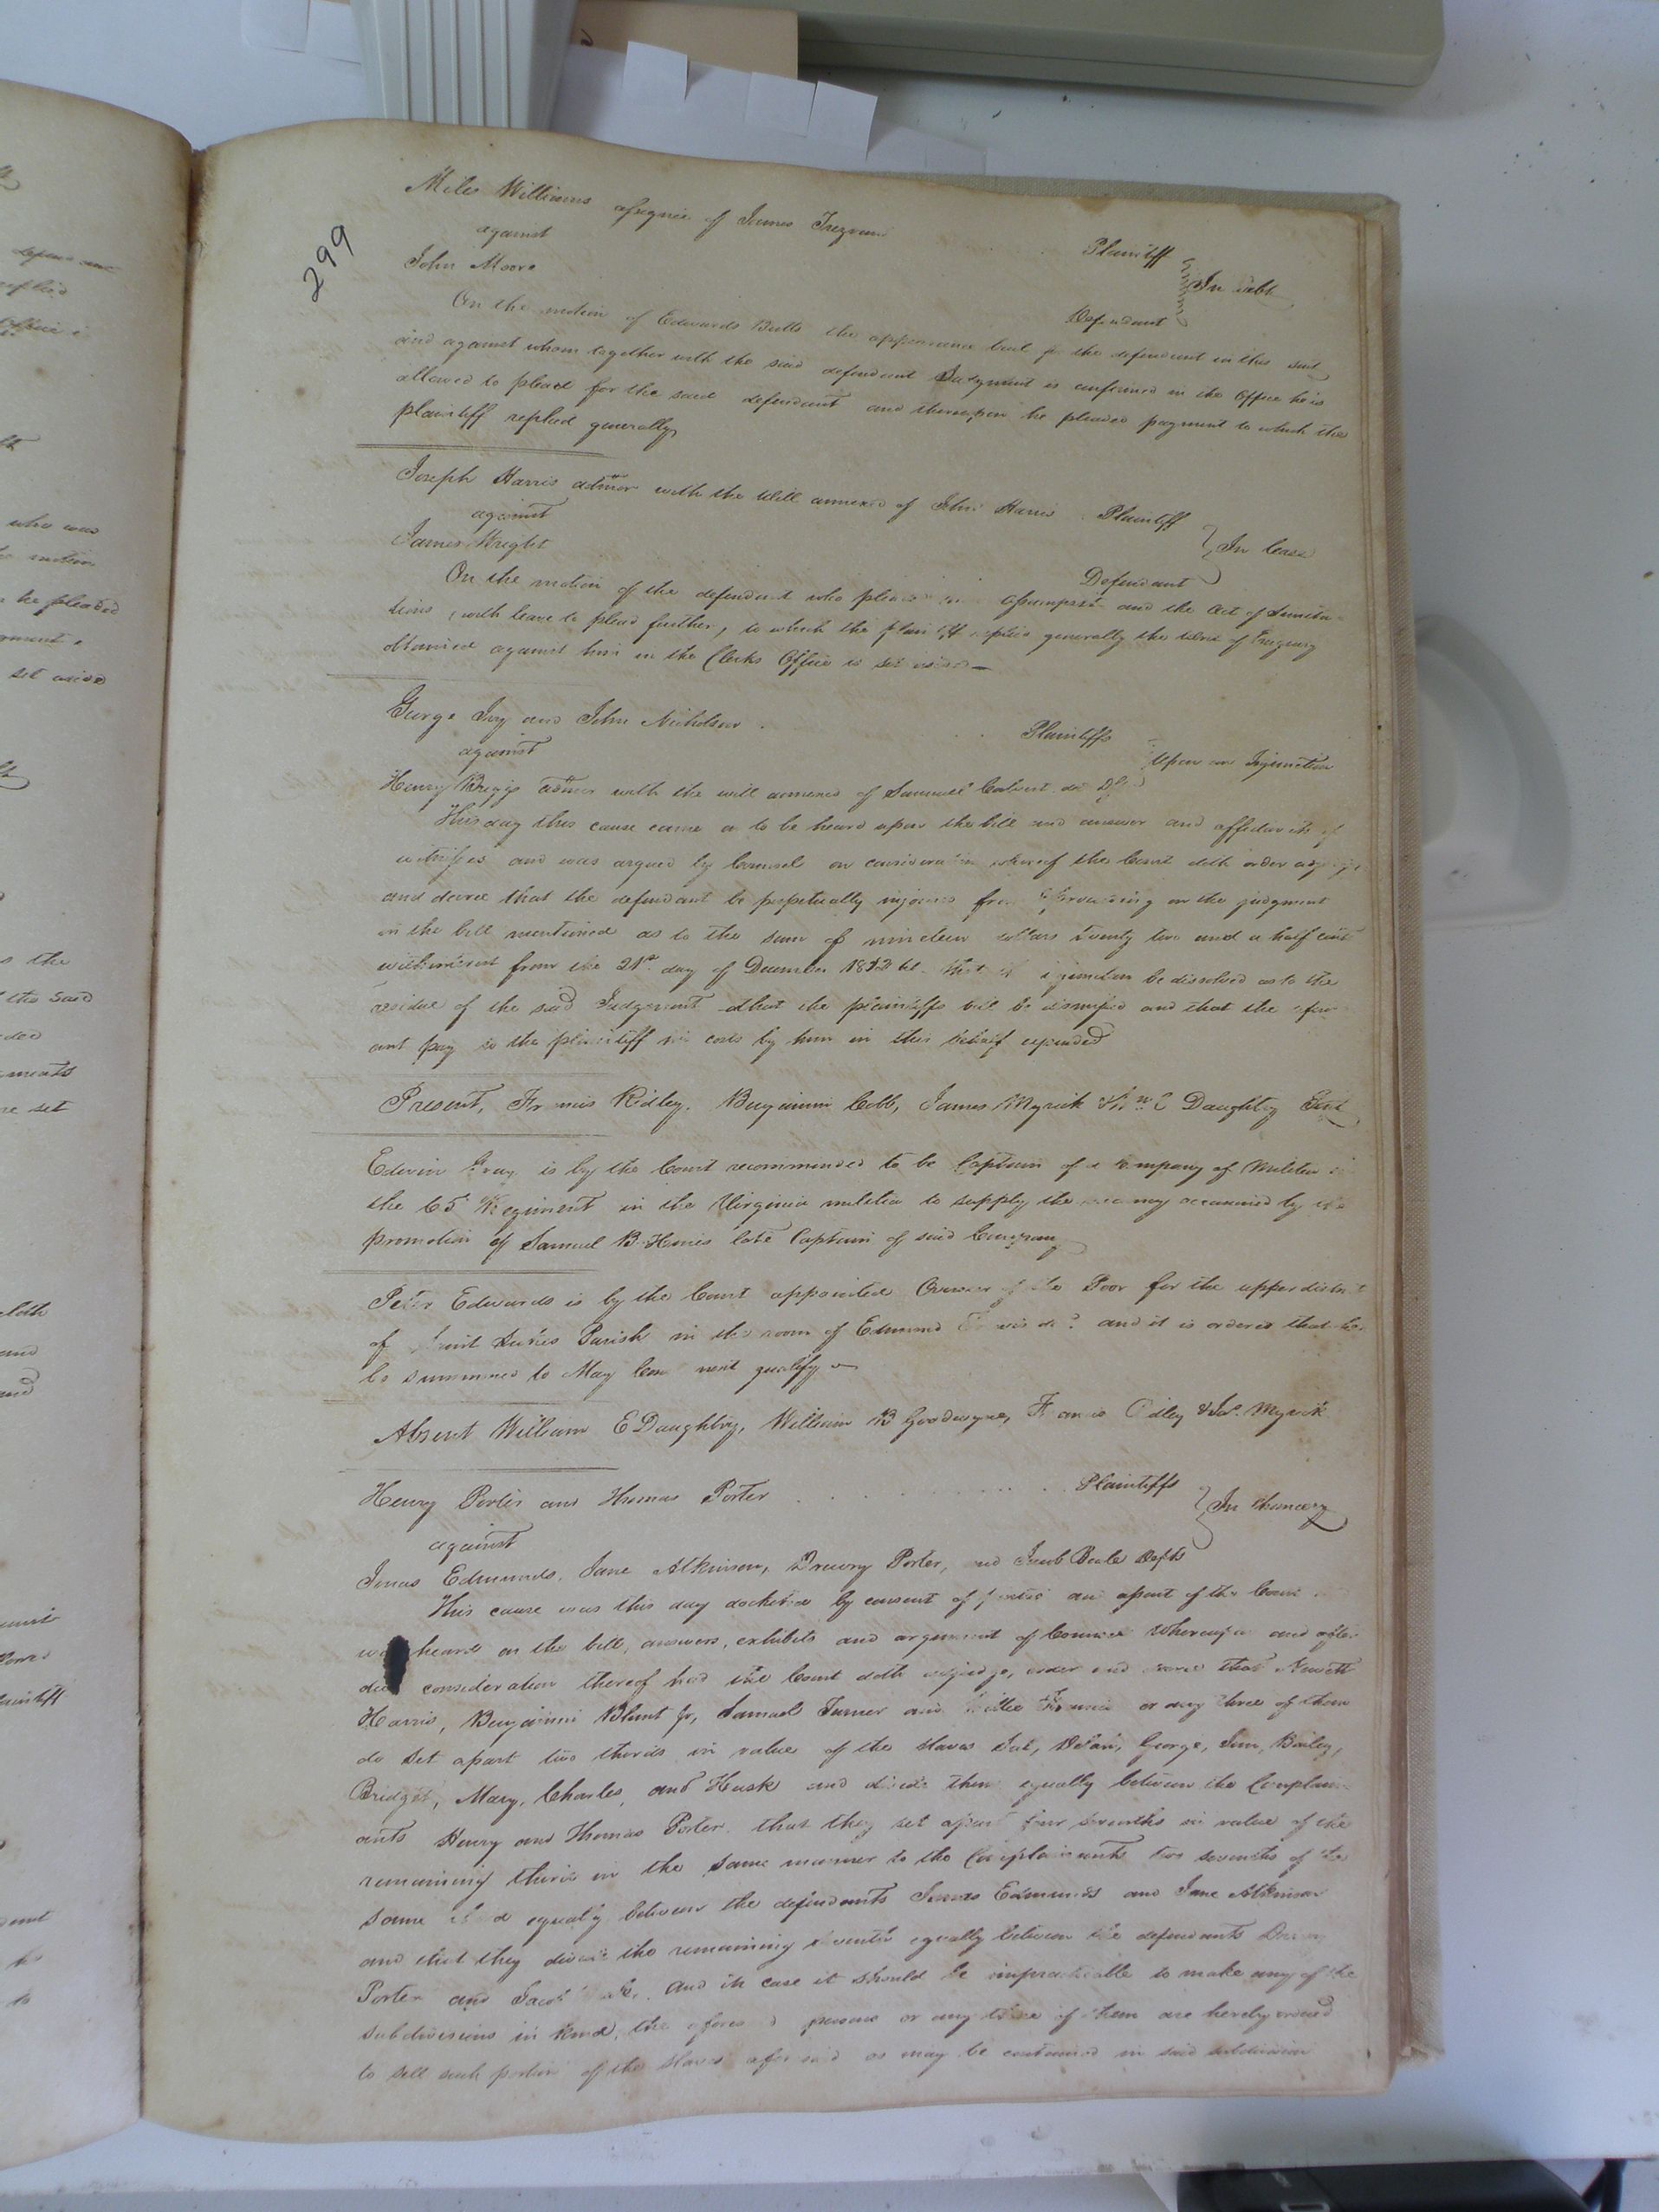 299
Miles Williams assignee of James Trezvant Plaintiff
against In debt
John Moore Defendant
On the motion of Edwards Butts the appearance bail for the defendant in this suit
and against whom together with the said defendant Judgment is confirmed in the Office he is
allowed to plead for the said defendant and thereupon he pleaded payment to which the
plaintiff replied generally
Joseph Harris admor with the Will annexed of John Harris Plaintiff
against In Case
James Wright Defendant
On the motion of the defendant who pleaded non assumpsit and the act of limita-
tions, with leave to plead further, to which the plaintiff replied generally the writ of Enquiry
obtained against him in the Clerks Office is set aside
George Ivy and John Nicholson Plaintiffs
against Upon an Injunction
Henry Briggs admor with the will annexed of Samuel Calvert decd Dft
This day this cause came on to be heard upon the bill and answer and affidavits of
witnesses and was argued by Counsel on consideration whereof the Court doth order adjudge
and decree that the defendant be perpetually injoined from proceeding on the judgment
in the bill mentioned as to the sum of nineteen dollars twenty two and a half cents
with interest from the 21st day of December that the injunction be dissolved as to the
residue of the said Judgement that the plaintiffs bill be dismissed and that the defend
ant pay to the plaintiff his costs by him in this behalf expended
Present, Francis Ridley, Benjamin Cobb, James Myrick & Wm E Daughtry Gent
Edwin Gray is by the Court recommended to be Captain of a company of Militia in
the 65 Regiment in the Virginia militia to supply the vacancy occasioned by the
promotion of Samuel B Hines late Captain of said Company
Peter Edwards is by the Court appointed Overseer of the Poor for the upper district
of Saint Lukes Parish in the room of Edmund and it is ordered that he
be summoned to May Court next qualify
Absent William E Daughtry, William B Goodwyn, Francis Ridley & Jas. Myrick
Henry Porter and Thomas Porter Plaintiffs
against In Chancery
Jonas Edmunds, Jane Atkinson, Drewry Porter, and Jacob Beale Defts
This cause was this day docketed by consent of parties and assent of the Court and
was heard on the bill, answers, exhibits and argument of Counsel Whereupon and after
due consideration thereof had the Court doth adjudge, order and decree that Newett
Harris, Benjamin Blunt Jr, Samuel Turner and Francis or any three of them
do set apart two thirds in value of the slaves George, Sam, Bailey,
Bridget, Mary, Charles, and Husk and divide them equally between the Complain-
ants Henry and Thomas Porter, that they set apart four sevenths in value of the
remaining third in the same manner to the Complainants two sevenths of the
same equally between the defendants Jonas Edmunds and Jane Atkinson
and that they divide the remaining seventh equally between the defendants Drewry
Porter and Jacob Beale. And in case it should be impracticable to make any of the
subdivisions in kind, the aforesaid persons or any three of them are hereby ordered
to sell such portion of the slaves aforesaid as may be contained in said subdivision